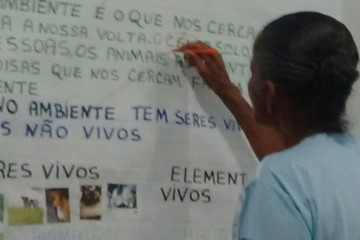 AMBIENTE É O QUE NOS CERCA
A A NOSSA VOLTA. O CÉU, O SOLO
ESSOAS, OS ANIMAIS
OISAS QUE NOS CERCAM FA
ENTE
NO AMBIENTE TEM SERES VIV
S NÃO VIVOS
RES VIVOS
ELEMENT
VIVOS
ANIMAIS